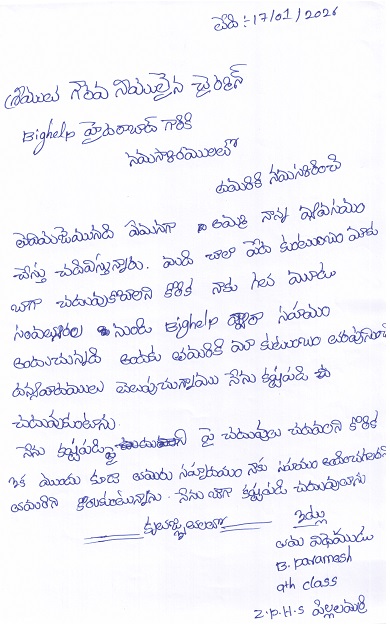 తేది :- 17/01/2026
శ్రీయుత గౌరవ నియులైన ఛైర్మన్
Bighelp హైదరాబాద్ గారికి
నమస్కారములతో
నమస్కరించి
అమ్మ నాన్న వ్యవసాయం
చేస్తు చదివిస్తున్నారు. మాది చాలా పేద కుటుంబం మాకు
బాగా చదువుకోవాలని కోరిక నాకు గత మూడు
సంవత్సరాల నుండి Bighelp ద్వారా సహాయం
అందుచున్నది అందుకు తమరికి మా కుటుంబం తరపునించి
ధన్యవాదములు తెలుపుచున్నాము నేను కష్టపడి
చదువుకుంటాను.
నేను కష్టపడి పై చదువులు చదవాలని కోరిక
ఇక ముందు కూడా తమరు నాకు సహాయం
తమరిని కోరుకుంటున్నాను. నేను బాగా కష్టపడి చదువుతాను
కృతజ్ఞతలతో
ఇట్లు
తమ విధేయుడు
B. paramesh
9th class
Z.P.H.S పిల్లలమర్రి